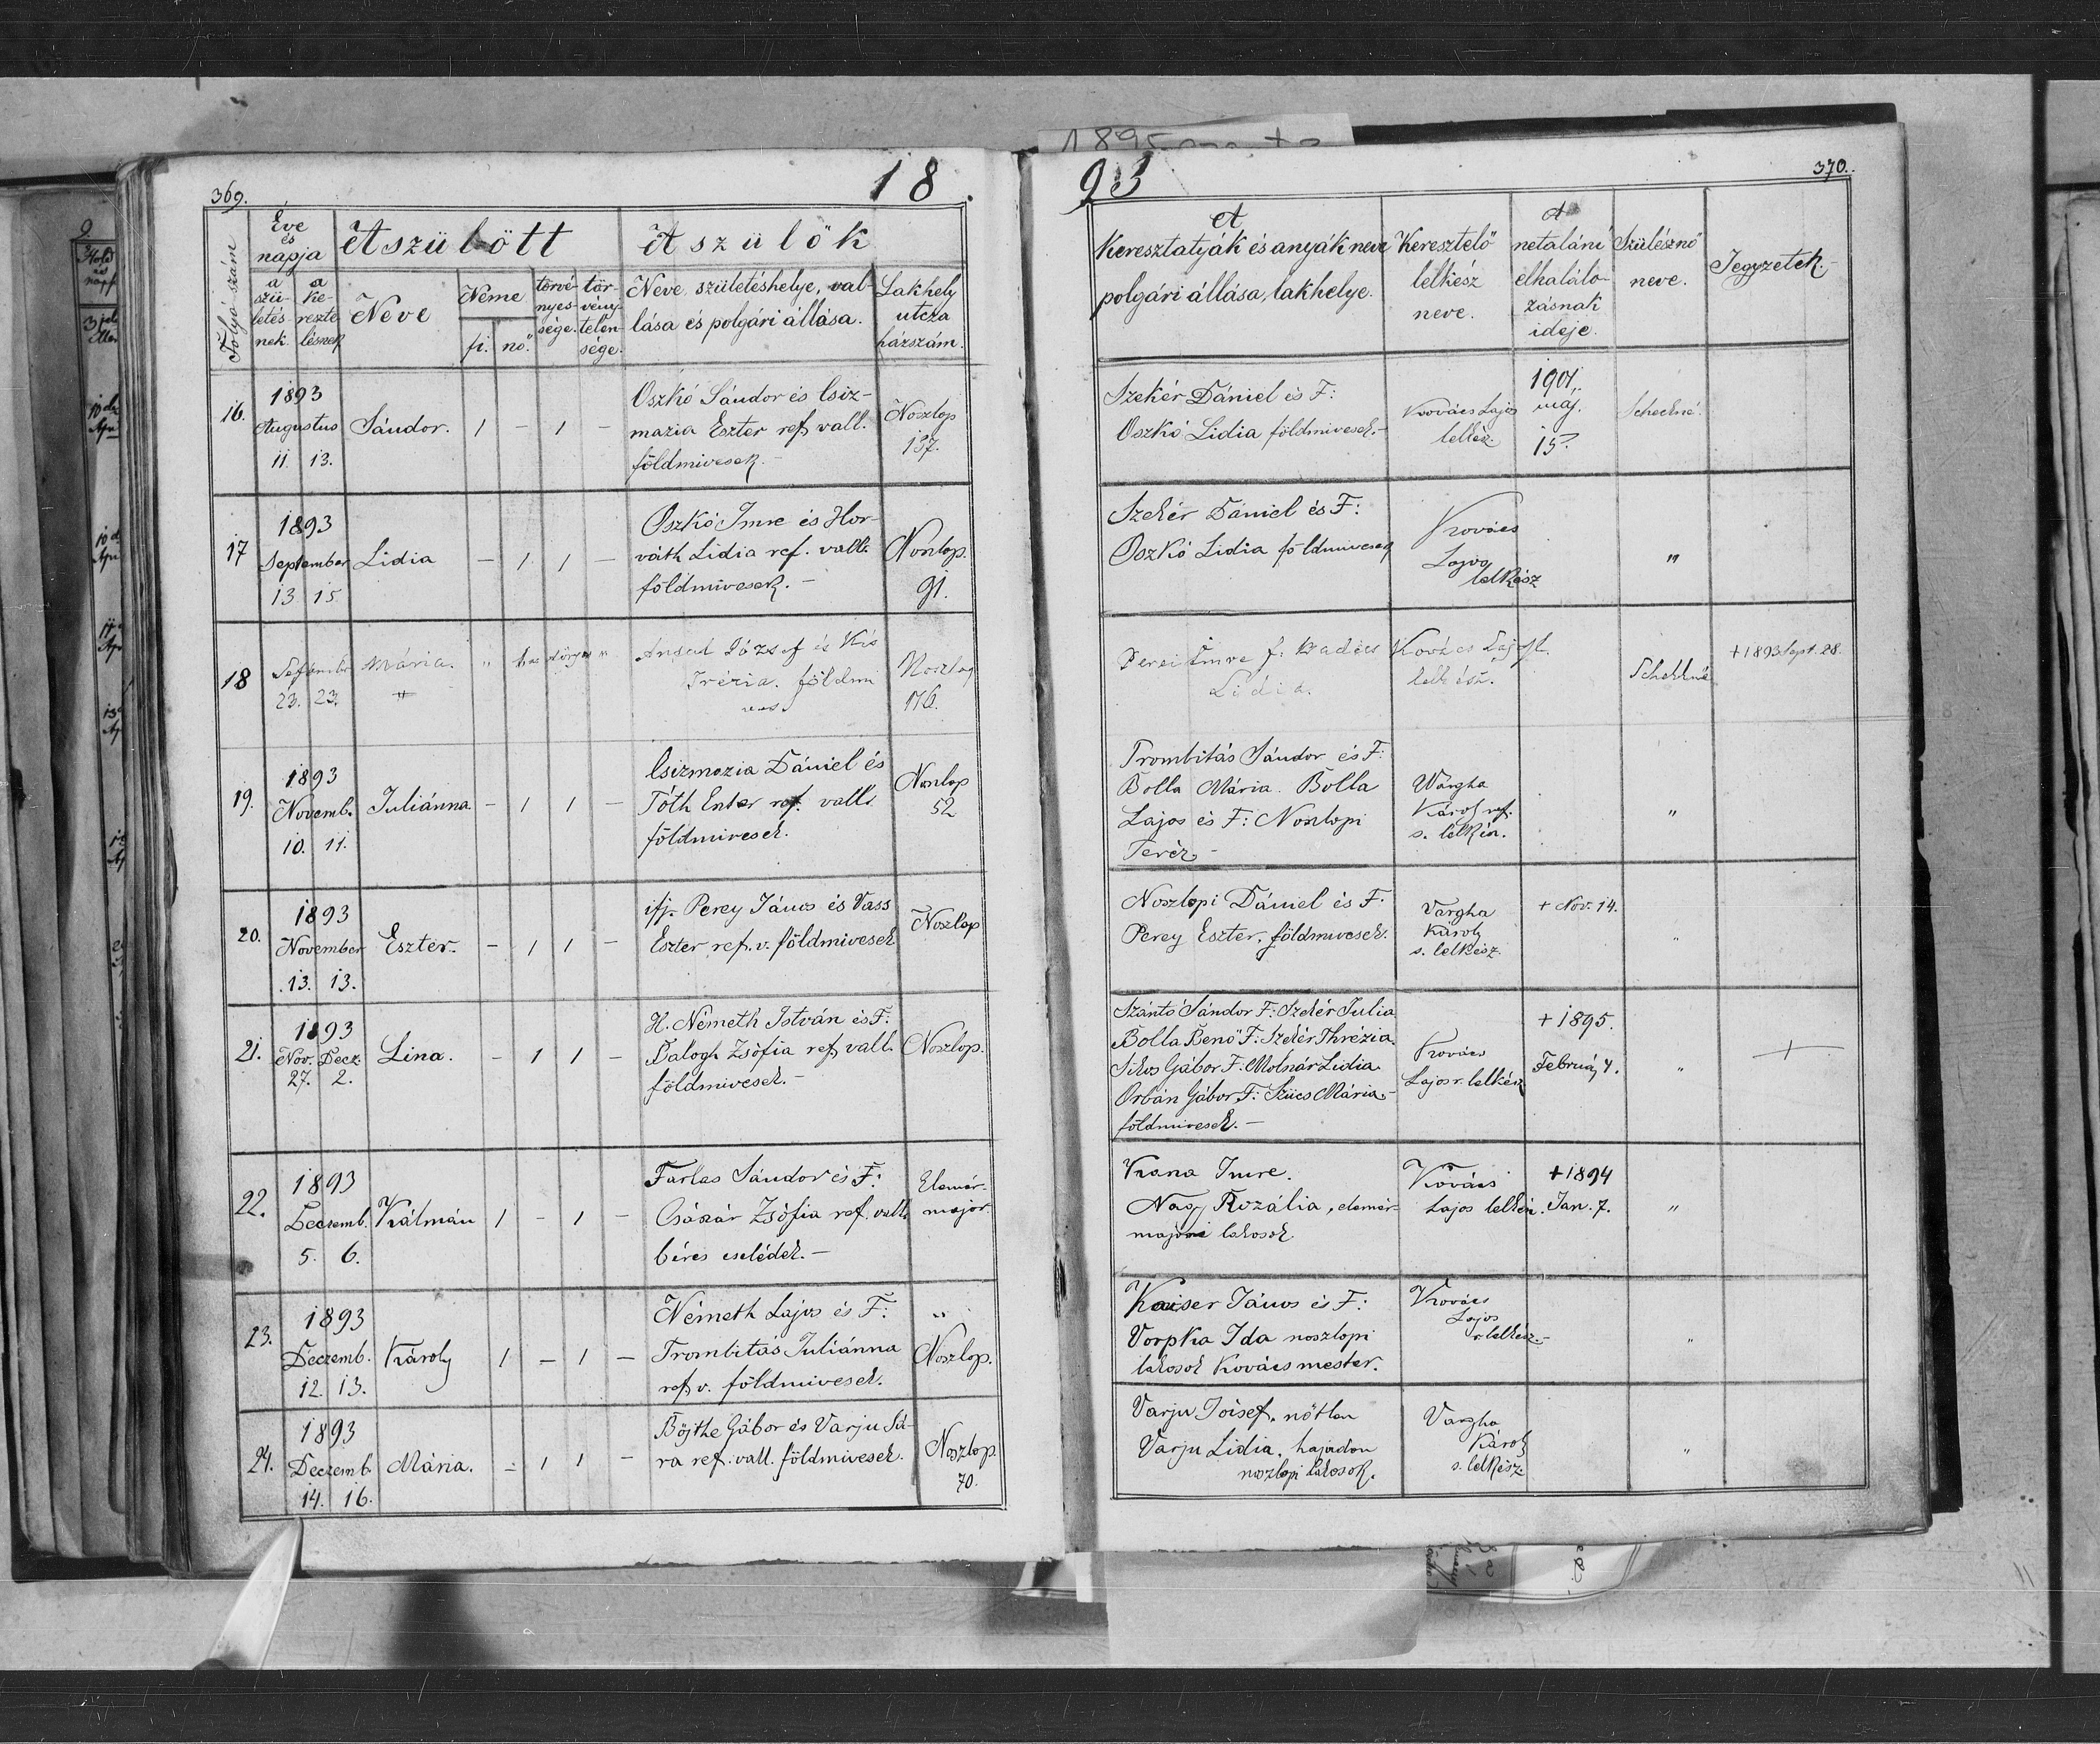 369.
18
Folyó szám
Éve és napja
a születésnek
a keresztelésnek
A született
Neve
Neme
fi.
nő.
törvényessége.
törvénytelensége.
A szülők
Neve születéshelye, vallása és polgári állása.
Lakhely utcza házszám.
16.
1893
Augustus
11. 13.
Sándor.
1 - 1 -
Oszkó Sándor és Csiz-
mazia Eszter ref. vall.
földmivesek.-
Noszlop
137.
17
1893
September
13 15
Lidia
- 1 1 -
Oszkó Imre és Hor-
váth Lidia ref. vall.
földmivesek.-
Noszlop.
91.
18
September
23. 23.
Mária.
József és Kis
földm
Noszlop
176.
19.
1893
Novemb.
10. 11.
Juliánna
- 1 1 -
Csizmazia Dániel és
Tóth Eszter ref. vall.
földmivesek.
Noszlop
52
20.
1893
November
13. 13.
Eszter.
- 1 1 -
ifj. Perey János és Vass
Eszter ref. v. földmivesek
Noszlop
21.
1893
Nov. Decz.
27. 2.
Lina.
- 1 1 -
H. Németh István és F:
Balogh Zsófia ref. vall.
földmivesek.-
Noszlop.
22.
1893
Deczemb.
5. 6.
Kálmán
1 - 1 -
Farkas Sándor és F:
Császár Zsófia ref. vall.
béres cselédek.-
Elemér-
major
23.
1893
Deczemb.
12. 13.
Károly
1 - 1 -
Németh Lajos és F:
Trombitás Juliánna
ref. v. földmivesek.
"
Noszlop.
24.
1893
Deczemb.
14. 16.
Mária.
- 1 1 -
Böjthe Gábor és Varju Sá-
ra ref. vall. földmivesek.
Noszlop.
70.
93
370.
A
Keresztatyák és anyák neve
polgári állása, lakhelye.
Keresztelő
lelkész
neve.
A
netaláni
elhalálo-
zásnak
ideje.
Szülésznő
neve.
Jegyzetek.-
Szekér Dániel és F:
Oszkó Lidia földmivesek.-
Kovács Lajos
lelkész.
1901.
máj.
15.
Szekér Dániel és F:
Oszkó Lidia földmivesek
Kovács
Lajos
lelkész
"
Perei Imre f.
Lidia.
Kovács Laj
lelkész.
+ 1893 sept. 28.
Trombitás Sándor és F:
Bolla Mária. Bolla
Lajos és F: Noszlopi
Teréz.-
Vargha
Károly ref.
s. lelkész.
"
Noszlopi Dániel és F.
Perey Eszter, földmivesek.
Vargha
Károly
s. lelkész.
+ Nov. 14.
"
Szántó Sándor F: Szekér Julia
Bolla Benő F: Szekér Thrézia.
Sikos Gábor F: Molnár Lidia.
Orbán Gábor F: Szücs Mária.-
földmivesek.-
Kovács
Lajos r. lelkész
+ 1895.
Február 4.
"
+
Kana Imre.
Nagy Rozália, elemér-
majori lakosok.
Kovács
Lajos lelkész.
+ 1894
Jan. 7.
"
Kaiser János és F:
Vorpka Ida noszlopi
lakosok Kovács mester.
Kovács
Lajos
r. lelkész.-
"
Varju József, nőtlen
Varju Lidia, hajadon
noszlopi lakosok.
Vargha
Károly
s. lelkész.
"